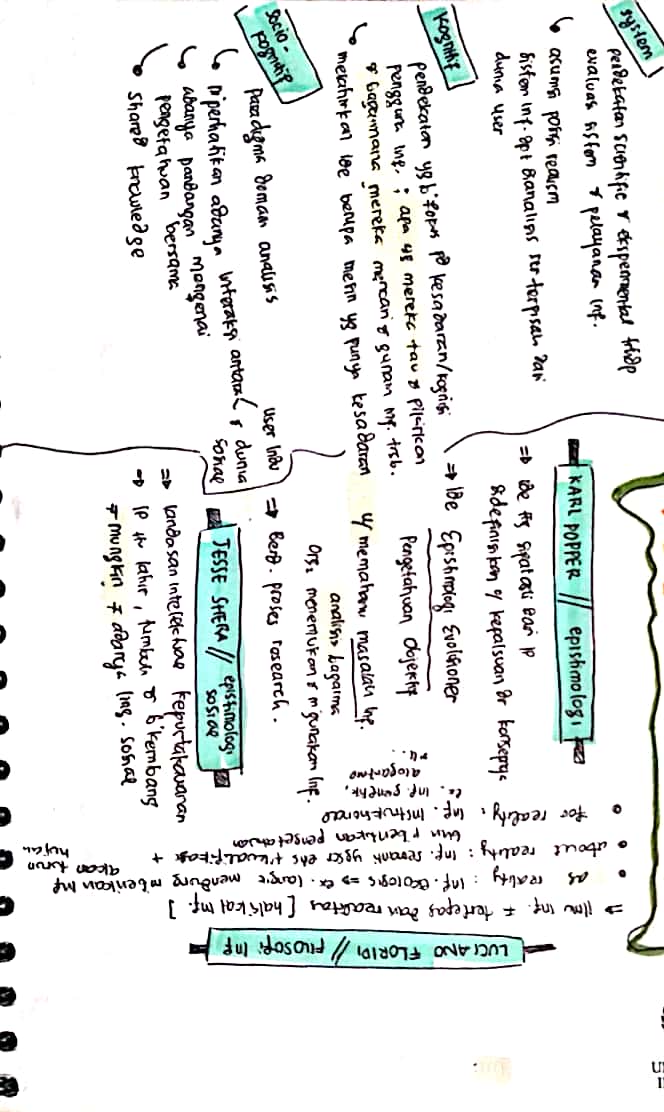 system
pendekatan scientific & eksperimental thdp
evaluasi sistem & pelayanan inf.
asumsi posisi realism
sistem inf. dpt dianalisis scr terpisah dari
dunia user
Kognitif
pendekatan yg b'fokus pd kesadaran/kognisi
pengguna inf. ; apa yg mereka tau & pikirkan
& bagaimana mereka mencari & gunain inf. tsb.
melahirkan ide berupa mesin yg punya kesadaran
socio-
kognitif
Paradigma domain analisis
Diperhatikan adanya interaksi antara user indv & dunia sosial
adanya pandangan mengenai
pengetahuan bersama
Shared knowledge
KARL POPPER // epistimologi
⇒ ide ttg dari IP
didefinisikan kepalsuan dr konsepnya
⇒ Ide Epistimologi Evolusioner
Pengetahuan Objektif
u/ memahami masalah inf.
analisis bagaimana
org2 menemukan & m'gunakan inf.
⇒ Berd. proses research.
JESSE SHERA // epistimologi
sosial
⇒ landasan intelektual kepustakawanan
⇒ IP tu lahir, tumbuh & b'kembang
≠ mungkin ≠ adanya ling. sosial
LUCIANO FLORIDI // FILOSOFI Inf
⇒ Ilmu inf. ≠ terlepas dari realitas [hakikat inf]
as reality : inf. Ekologis ⇒ ex. langit mendung m'berikan inf
akan turun
hujan
about reality : inf. semantik yg eks + kualifikasi +
pengetahuan
for reality : inf. Instruksional
ex. inf. genetik,
alogaritma